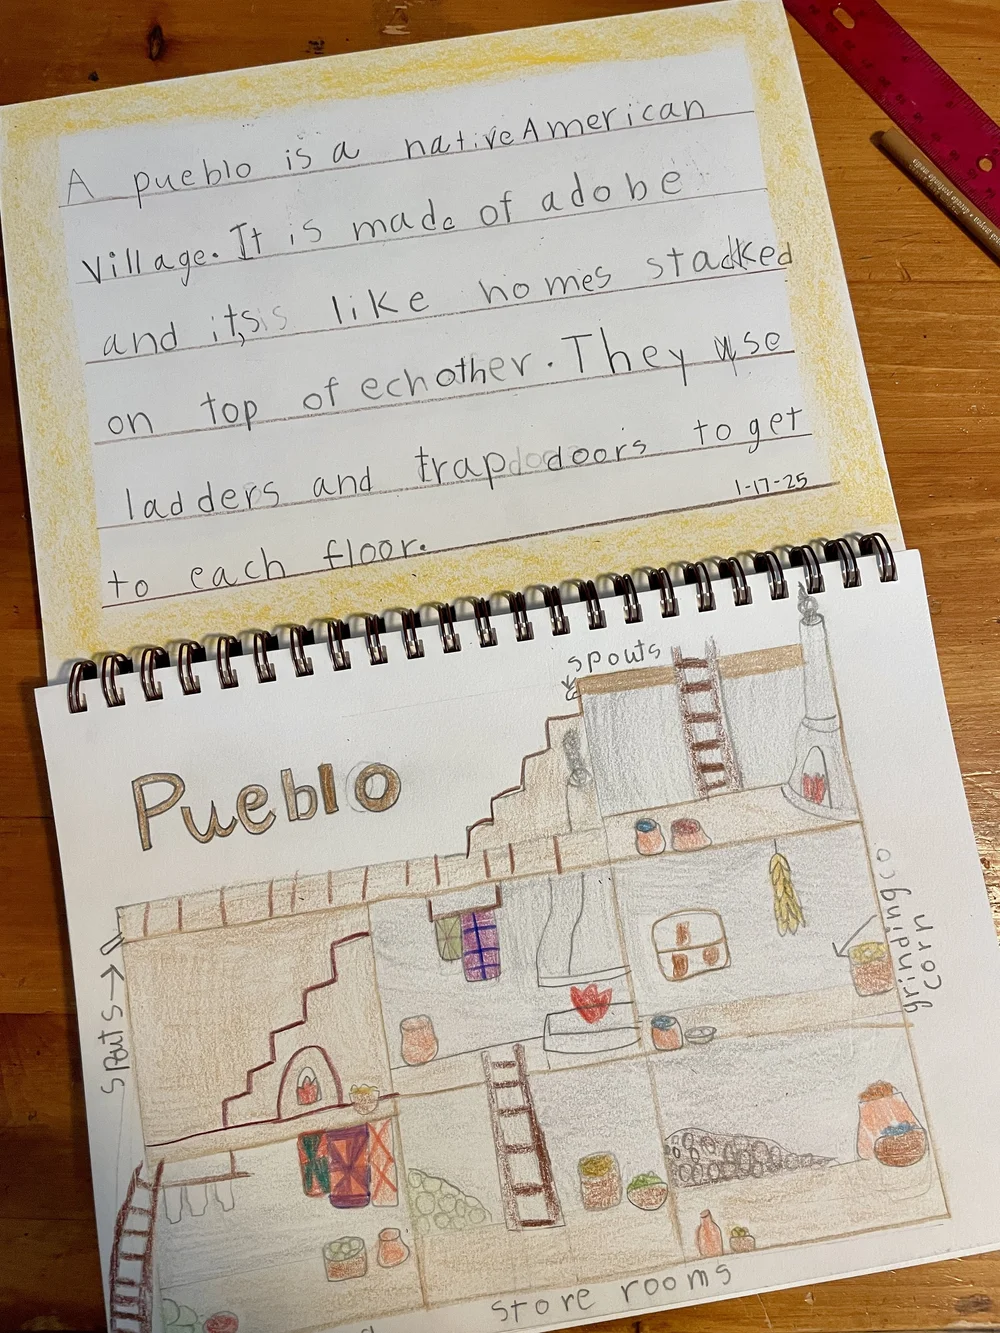 A pueblo is a native American
village. It is made of adobe
and its like homes stacked
on top of echother. They use
ladders and trap doors to get
1-17-25
to each floor.
spouts
Pueblo
grinding
corn
spouts
store rooms